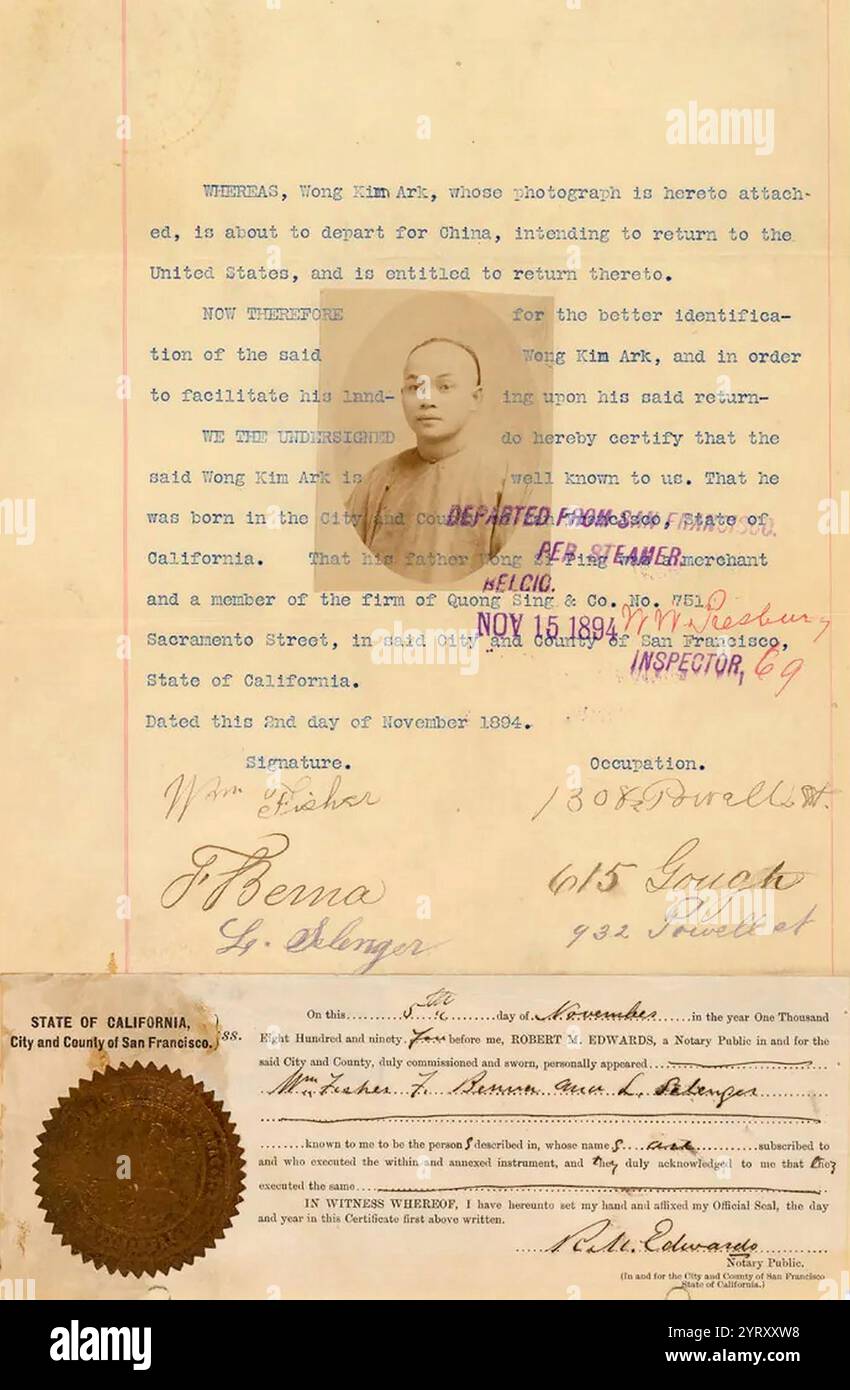 WHEREAS, Wong Kim Ark, whose photograph is hereto attach-
ed, is about to depart for China, intending to return to the
United States, and is entitled to return thereto.
NOW THEREFORE for the better identifica-
tion of the said Wong Kim Ark, and in order
to facilitate his land- ing upon his said return-
WE THE UNDERSIGNED do hereby certify that the
said Wong Kim Ark is well known to us. That he
was born in the City and Cou Francisco, State of
DEPARTED FROM SAN FRANCISCO.
California. That his father Wong Si Ping was a merchant
PER STEAMER.
BELGIC.
and a member of the firm of Quong Sing & Co. No. 751
NOV 15 1894
Sacramento Street, in said City and County of San Francisco,
INSPECTOR,
State of California.
Dated this 2nd day of November 1894.
Signature. Occupation.
Wm Fisher 1308 Powell St.
F Berna 615 Gough
L. Selenger 932 Powell st
STATE OF CALIFORNIA,
City and County of San Francisco. ss.
On this 5th day of November in the year One Thousand
Eight Hundred and ninety four before me, ROBERT M. EDWARDS, a Notary Public in and for the
said City and County, duly commissioned and sworn, personally appeared
Wm Fisher F. Benna and L. Selenger
known to me to be the persons described in, whose names are subscribed to
and who executed the within and annexed instrument, and they duly acknowledged to me that they
executed the same
IN WITNESS WHEREOF, I have hereunto set my hand and affixed my Official Seal, the day
and year in this Certificate first above written.
R. M. Edwards
Notary Public.
(In and for the City and County of San Francisco
State of California.)
alamy
a
alamy
Image ID: 2YRXXW8
www.alamy.com